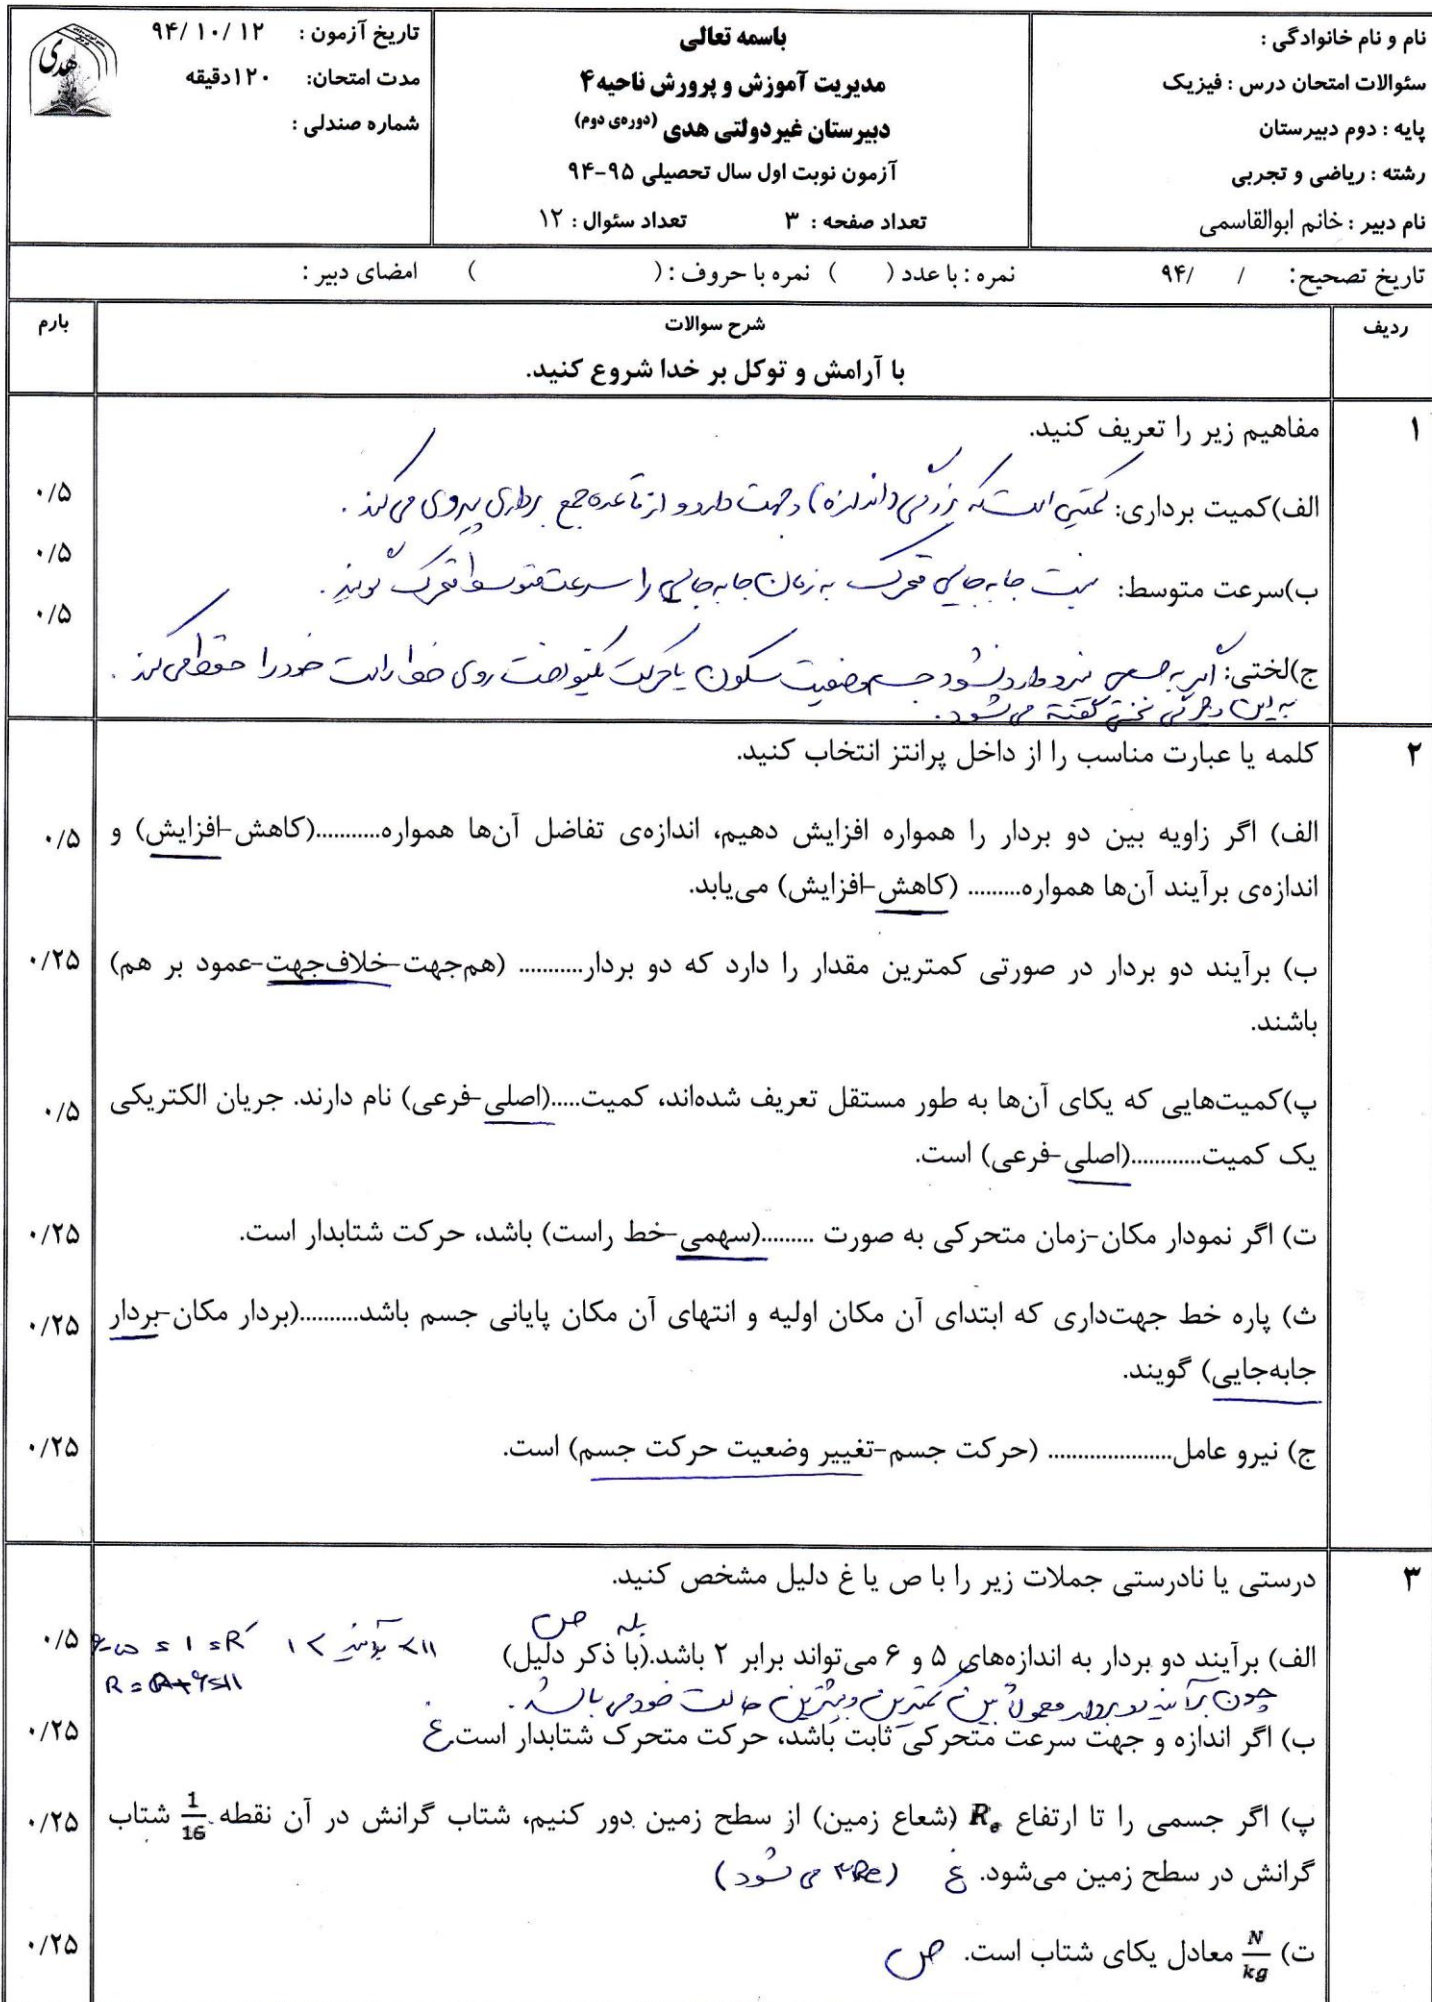 نام و نام خانوادگی :
سئوالات امتحان درس : فیزیک
پایه : دوم دبیرستان
رشته : ریاضی و تجربی
نام دبیر : خانم ابوالقاسمی
باسمه تعالی
مدیریت آموزش و پرورش ناحیه ۴
دبیرستان غیردولتی هدی (دوره‌ی دوم)
آزمون نوبت اول سال تحصیلی ۹۵-۹۴
تعداد صفحه : ۳ تعداد سئوال : ۱۲
تاریخ آزمون : ۱۲ /۱۰ /۹۴
مدت امتحان: ۱۲۰دقیقه
شماره صندلی :
هدی
تاریخ تصحیح: / /۹۴ نمره : با عدد ( ) نمره با حروف : ( ) امضای دبیر :
ردیف شرح سوالات بارم
با آرامش و توکل بر خدا شروع کنید.
۱ مفاهیم زیر را تعریف کنید.
الف)کمیت برداری: کمیتی است که بزرگی (اندازه) و جهت دارد و از قاعده جمع برداری پیروی می کند . ۰/۵
ب)سرعت متوسط: نسبت جابه جایی متحرک به زمان جابه جایی را سرعت متوسط متحرک گویند . ۰/۵
ج)لختی: اگر به جسمی نیرو وارد نشود جسم وضعیت سکون یا حرکت یکنواخت روی خط راست خود را حفظ می کند . ۰/۵
به این ویژگی لختی گفته می شود .
۲ کلمه یا عبارت مناسب را از داخل پرانتز انتخاب کنید.
الف) اگر زاویه بین دو بردار را همواره افزایش دهیم، اندازه‌ی تفاضل آن‌ها همواره...........(کاهش-افزایش) و ۰/۵
اندازه‌ی برآیند آن‌ها همواره......... (کاهش-افزایش) می‌یابد.
ب) برآیند دو بردار در صورتی کمترین مقدار را دارد که دو بردار........... (هم‌جهت-خلاف‌جهت-عمود بر هم) ۰/۲۵
باشند.
پ)کمیت‌هایی که یکای آن‌ها به طور مستقل تعریف شده‌اند، کمیت.....(اصلی-فرعی) نام دارند. جریان الکتریکی ۰/۵
یک کمیت............(اصلی-فرعی) است.
ت) اگر نمودار مکان-زمان متحرکی به صورت .........(سهمی-خط راست) باشد، حرکت شتابدار است. ۰/۲۵
ث) پاره خط جهت‌داری که ابتدای آن مکان اولیه و انتهای آن مکان پایانی جسم باشد..........(بردار مکان-بردار ۰/۲۵
جابه‌جایی) گویند.
ج) نیرو عامل..................... (حرکت جسم-تغییر وضعیت حرکت جسم) است. ۰/۲۵
۳ درستی یا نادرستی جملات زیر را با ص یا غ دلیل مشخص کنید.
بله ص
الف) برآیند دو بردار به اندازه‌های ۵ و ۶ می‌تواند برابر ۲ باشد.(با ذکر دلیل) ۱۱ > برآیند > ۱ ۶-۵ = ۱ = R ۰/۵
R = ۵+۶=۱۱
چون برآیند دو بردار معمولاً بین کمترین و بیشترین حالت خود می باشد .
ب) اگر اندازه و جهت سرعت متحرکی ثابت باشد، حرکت متحرک شتابدار است. غ ۰/۲۵
پ) اگر جسمی را تا ارتفاع Re (شعاع زمین) از سطح زمین دور کنیم، شتاب گرانش در آن نقطه 1/16 شتاب ۰/۲۵
گرانش در سطح زمین می‌شود. غ (۳Re می شود)
ت) N/kg معادل یکای شتاب است. ص ۰/۲۵